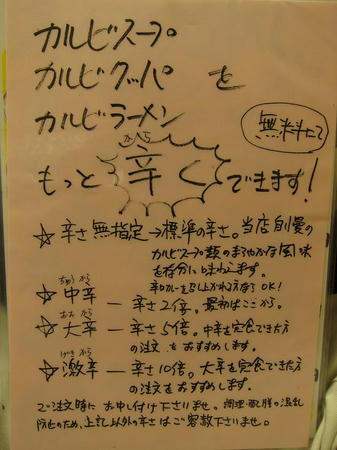 カルビスープ
カルビクッパ を
カルビラーメン
無料にて
から
もっと 辛く できます!
☆ 辛さ無指定→標準の辛さ。当店自慢の
カルビスープ類のまろやかな風味
を存分に味わえます。
辛口カレーを召し上がれる方なら OK!
ちゅう から
☆ 中辛 ー 辛さ2倍。最初はここから。
おお から
☆ 大辛 ー 辛さ5倍。中辛を完食できた方
の注文をおすすめします。
げき から
☆ 激辛 ー 辛さ10倍。大辛を完食できた方
の注文をおすすめします。
ご注文時に お申し付け下さいませ。調理・配膳の混乱
防止のため、上記以外の辛さはご容赦下さいませ。